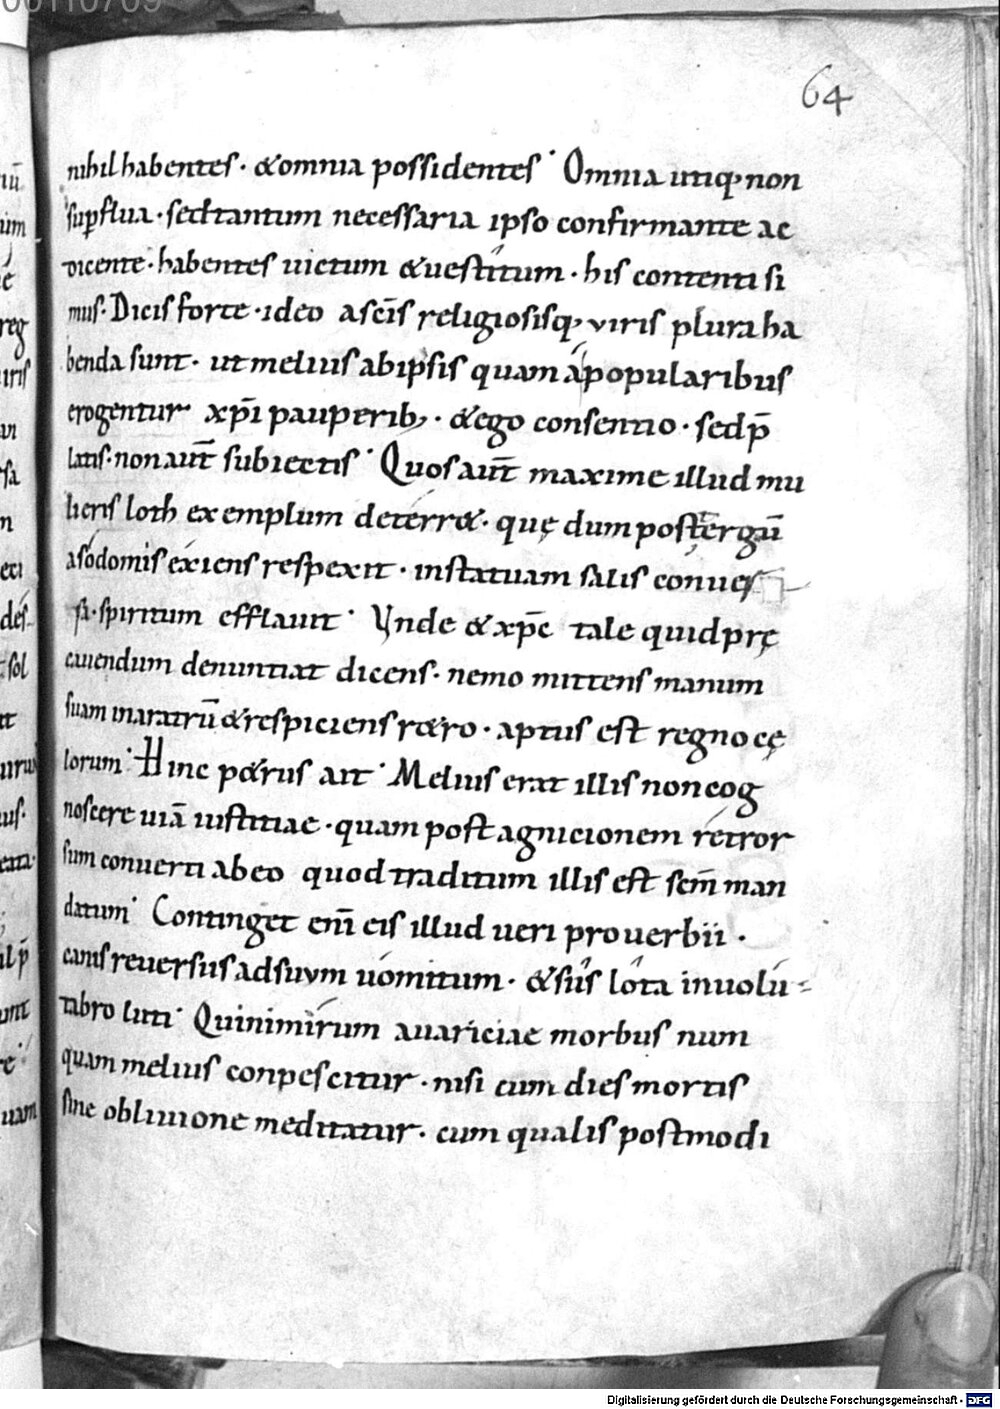 64
nihil habentes · &omnia possidentes · Omnia utiq; non
sup̱flua · sed tantum necessaria ipso confirmante ac
dicente · habentes uictum &uestitum · his contenti si
mus · Dicis forte · ideo a sc̄is religiosisq; viris plura ha
benda sunt · ut melius ab ipsis quam a popularibus
erogentur xp̄i pauperib; · &ego consentio · sed p̄
latis · non aut̄ subiectis · Quos aut̄ maxime illud mu
lieris loth exemplum deterr& · quę dum post tergū
a sodomis exiens respexit · in statuam salis conuer
sa · spiritum efflauit · Vnde &xp̄c tale quid prę
cauendum denuntiat dicens · nemo mittens manum
suam in aratrū &respiciens r&ro · aptus est regno cę
lorum · Hinc p&rus ait · Melius erat illis non cog
noscere uiā iustitiae · quam post agnicionem retror
sum conuerti ab eo quod traditum illis est sc̄m man
datum · Continget eni̅ eis illud ueri prouerbii ·
canis reuersus ad suvm uomitum · &sus lota in uolu-
tabro luti · Quinimirum auariciae morbus num
quam melius conpescitur · nisi cum dies mortis
sine obliuione meditatur · cum qualis postmodi
Digitalisierung gefördert durch die Deutsche Forschungsgemeinschaft - DFG